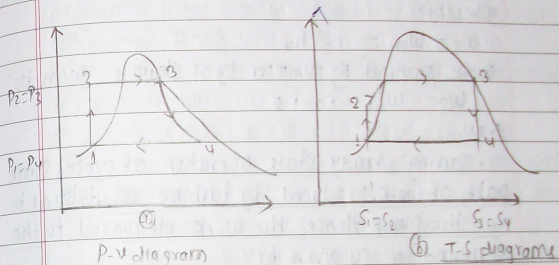 P2=P3
P1=P4
2
3
1
4
(a)
P-V diagram
T
2
3
1
4
S1=S2
S3=S4
(b) T-S diagrams